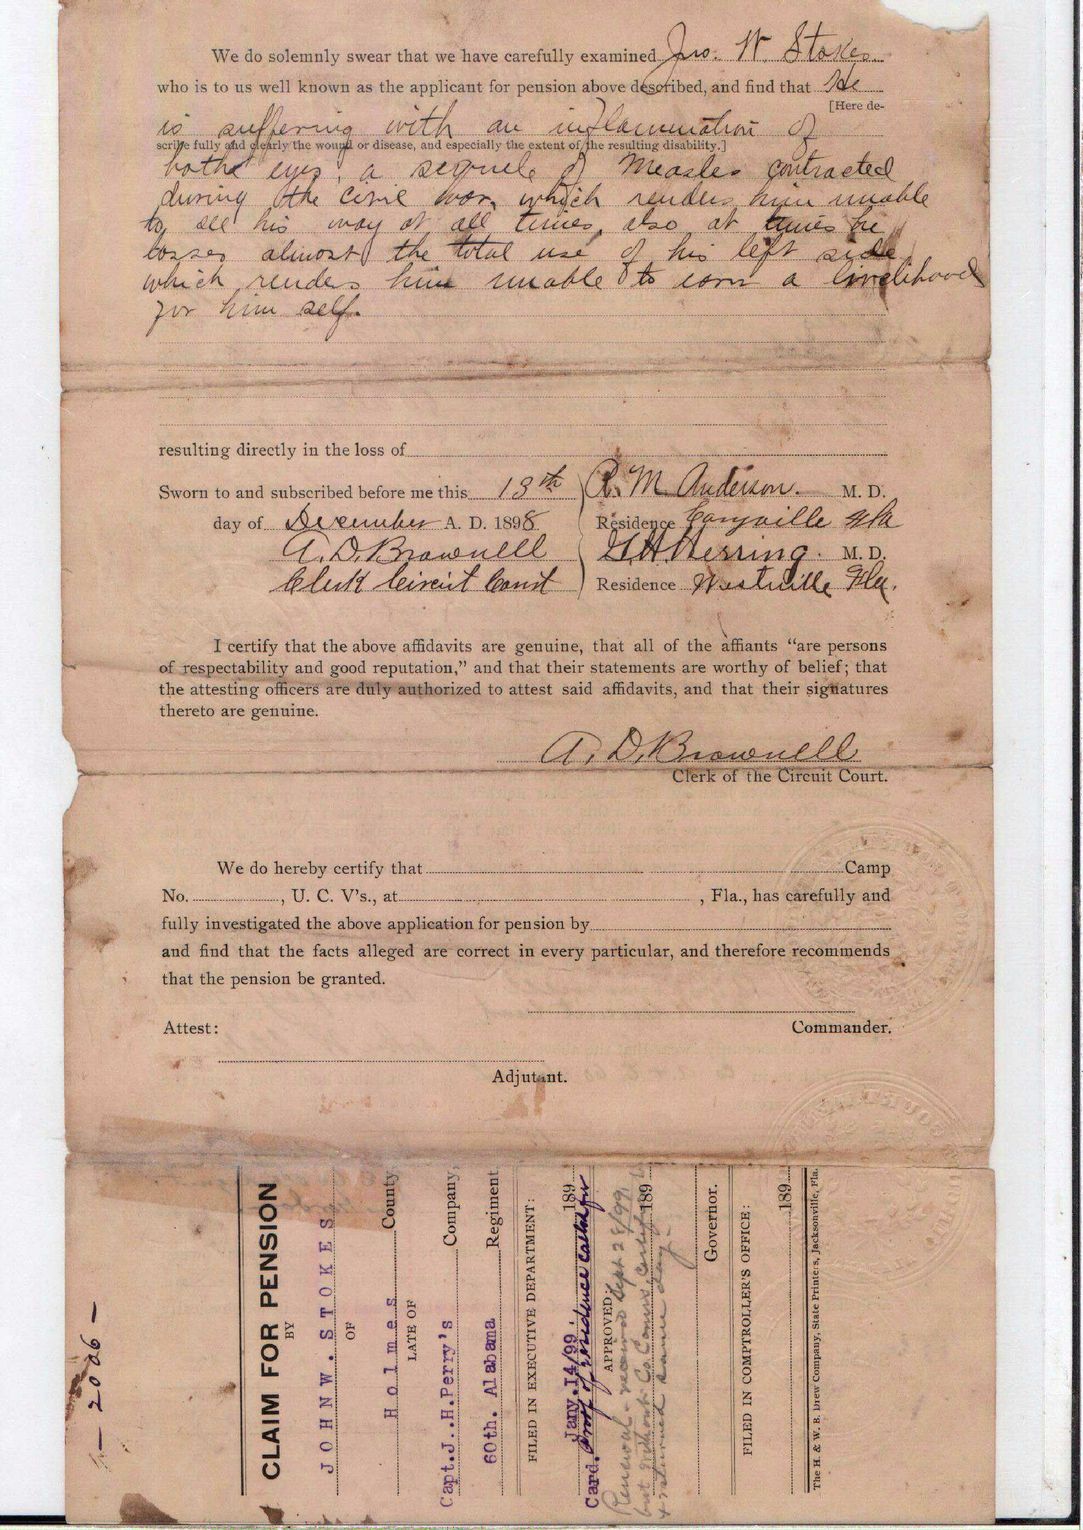 We do solemnly swear that we have carefully examined Jno. W Stokes
who is to us well known as the applicant for pension above described, and find that He
[Here de-
is suffering with an inflammation of
scribe fully and clearly the wound or disease, and especially the extent of the resulting disability.]
bothe eyes, a sequele of Measles contracted
during the civil war, which renders him unable
to see his way at all times, also at times he
losses almost the total use of his left side
which renders him unable to earn a livelihood
for him self.
resulting directly in the loss of
Sworn to and subscribed before me this 13th
day of December A. D. 1898
A. D. Brownell
Clerk Circuit Court
R. M Anderson. M. D.
Residence Caryville Fla
G. H. Herring. M. D.
Residence Westville Fla.
I certify that the above affidavits are genuine, that all of the affiants “are persons
of respectability and good reputation,” and that their statements are worthy of belief; that
the attesting officers are duly authorized to attest said affidavits, and that their signatures
thereto are genuine.
A. D. Brownell
Clerk of the Circuit Court.
We do hereby certify that Camp
No. , U. C. V's., at , Fla., has carefully and
fully investigated the above application for pension by
and find that the facts alleged are correct in every particular, and therefore recommends
that the pension be granted.
Attest:
Commander.
Adjutant.
— 2006 —
CLAIM FOR PENSION
BY
JOHN W. STOKES
OF
Holmes County,
LATE OF
Capt.J..H.Perry's Company,
60th. Alabama Regiment
FILED IN EXECUTIVE DEPARTMENT:
Jany.14/99. 189
Card. proof of residence called for
APPROVED:
Renewal - received Sept 28/99,
but without Co. Comrs. certif
189
& returned same day.
Governor.
FILED IN COMPTROLLER'S OFFICE:
189
The H. & W. B. Drew Company, State Printers, Jacksonville, Fla.